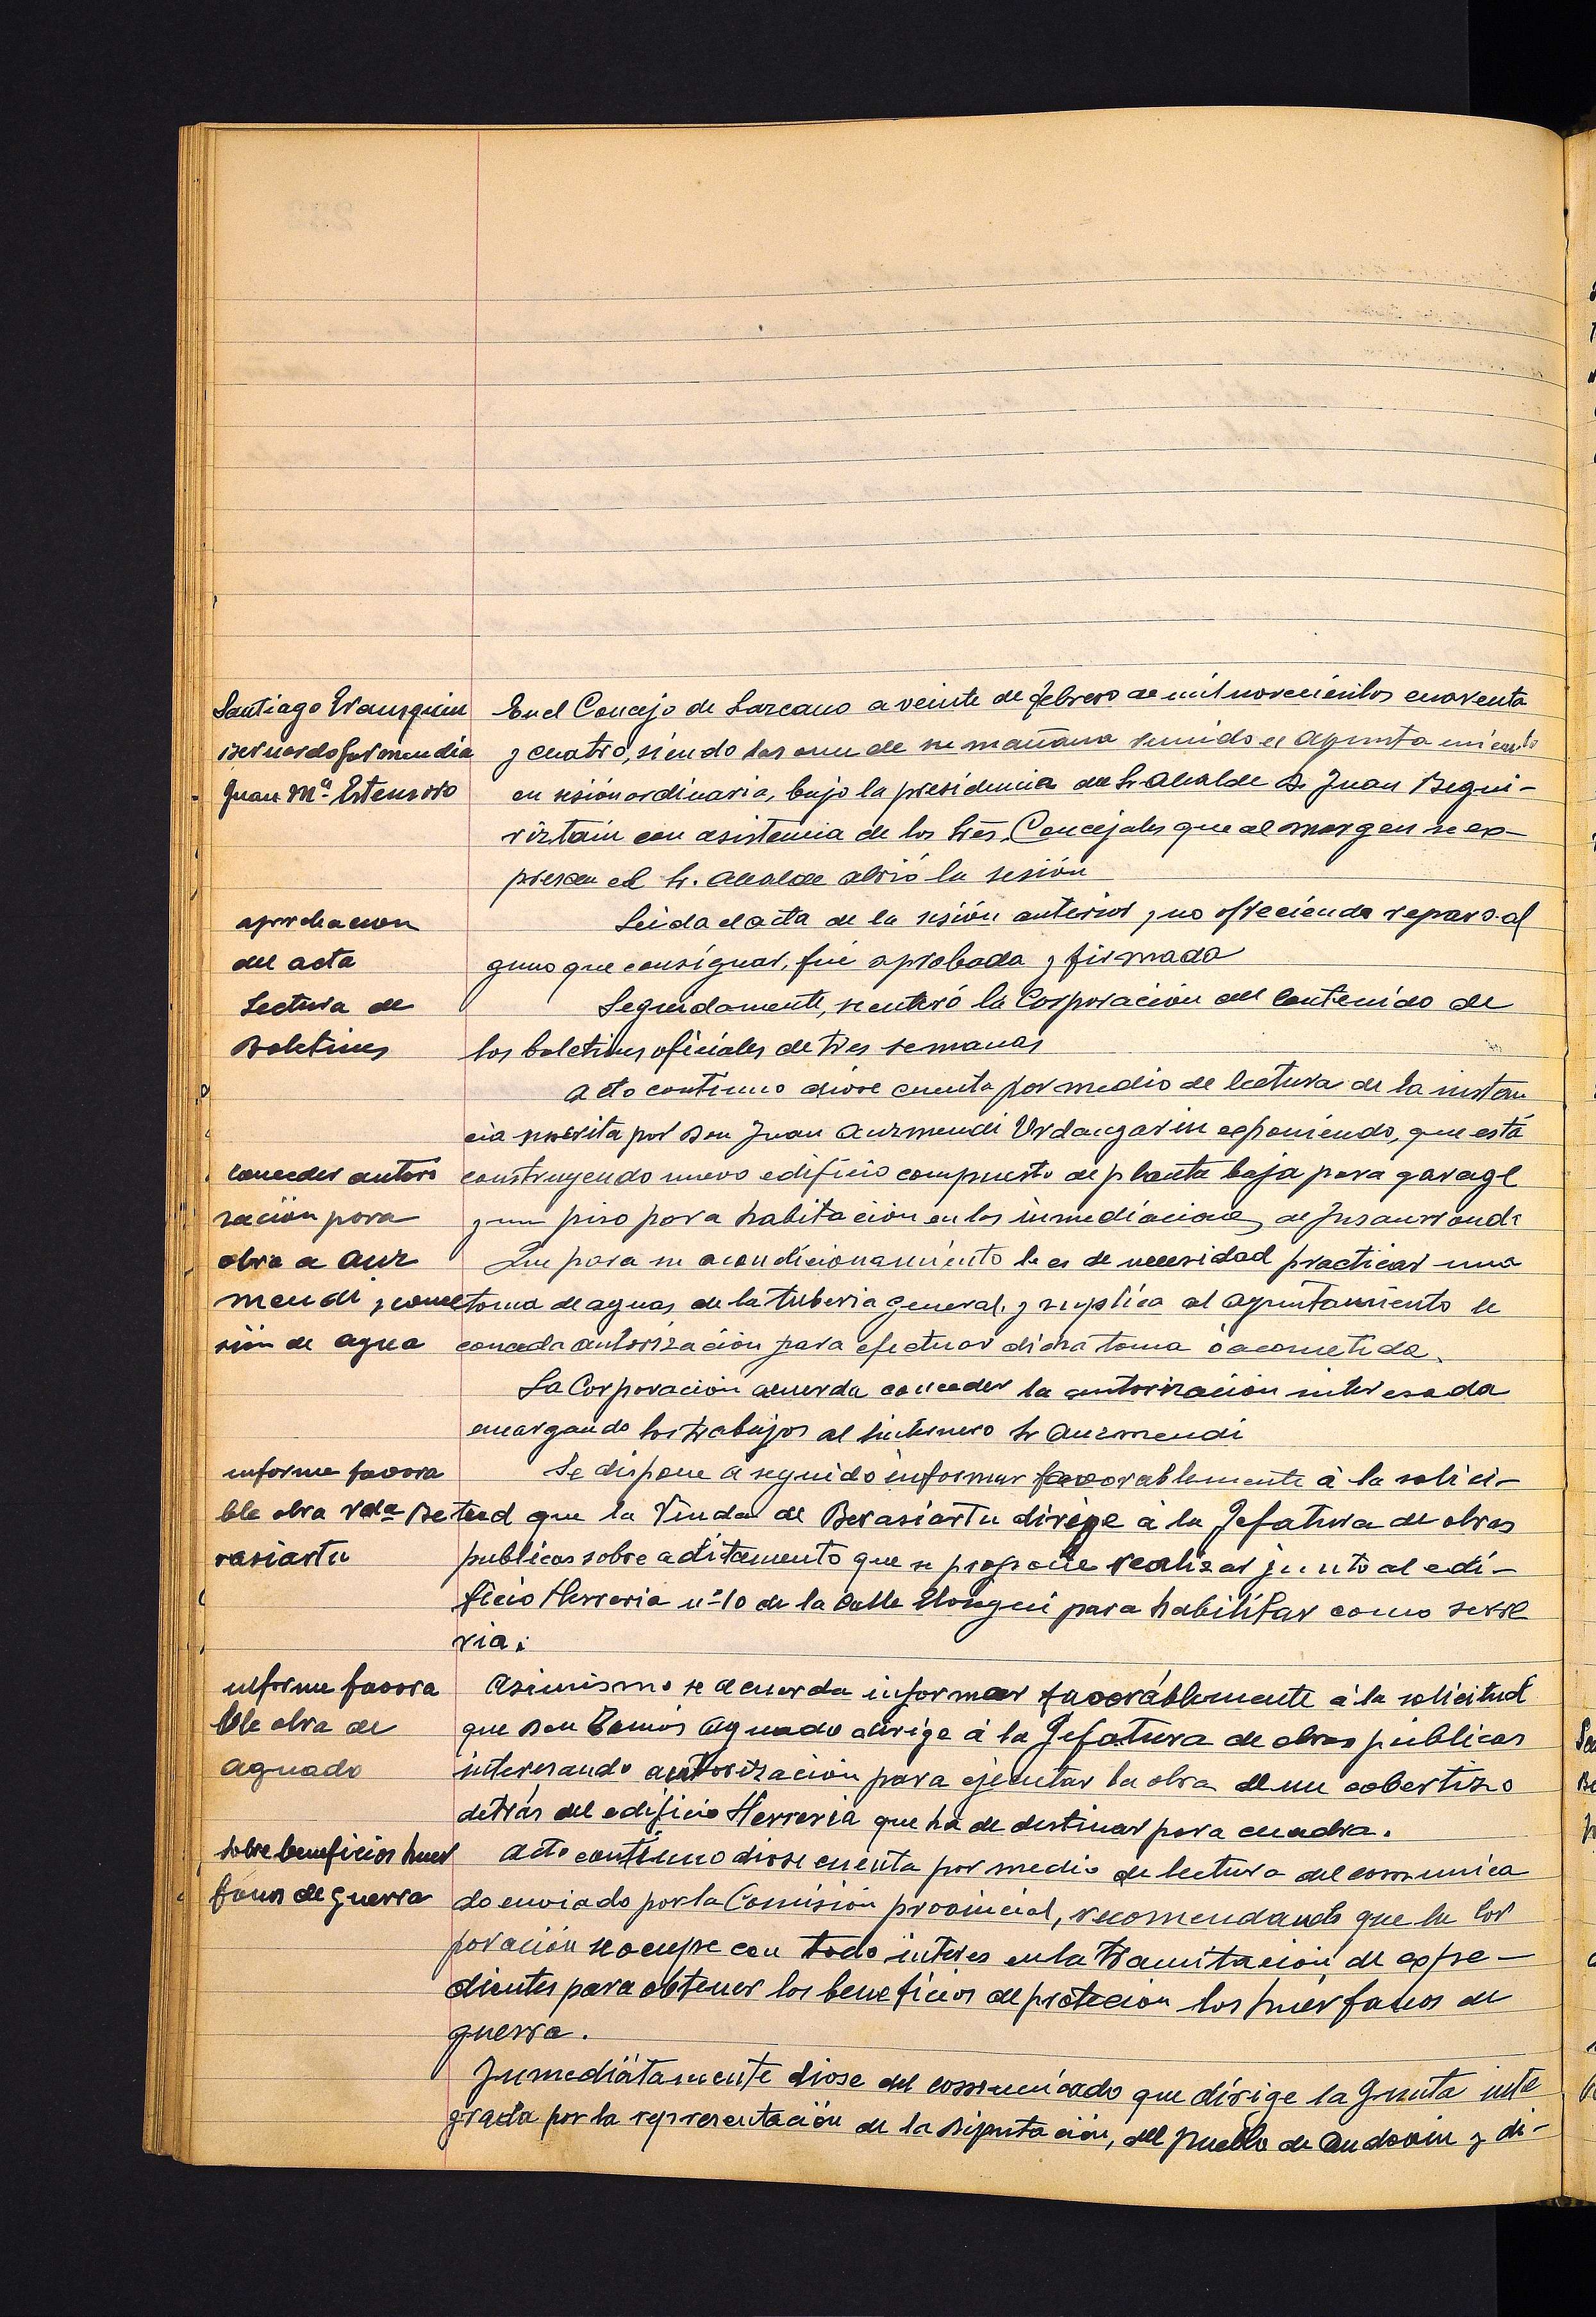 Santiago Irausquin
Bernardo Garmendia
Juan Mª Estensoro
En el Concejo de Lazcano a veinte de febrero de mil novecientos cuarenta
y cuatro, siendo las once de su mañana reunido el Ayuntamiento
en sesión ordinaria, bajo la presidencia del Sr. Alcalde D. Juan Begui-
riztain con asistencia de los Sres. Concejales que al margen se ex-
presan el Sr. Alcalde abrió la sesión
aprobacion
del acta
Leida el acta de la sesión anterior y no ofreciendo reparo al
guno que consignar, fué aprobada y firmada
Lectura de
Boletines
Seguidamente, se enteró la Corporación del contenido de
los boletines oficiales de tres semanas
Acto continuo diose cuenta por medio de lectura de la instan
cia suscrita por Don Juan Auzmendi Urdangarin exponiendo, que está
conceder autori
zación para
obra a Auz
mendi y conce
sión de agua
construyendo nuevo edificio compuesto de planta baja para garage
y un piso para habitación en las inmediaciones de Insaurrandi
Que para su acondicionamiento le es de necesidad practicar una
toma de aguas de la tuberia general, y suplica al Ayuntamiento le
conceda autorización para efectuar dicha toma ó acometida.
La Corporación acuerda conceder la autorización interesada
encargando los trabajos al hintenero Sr Auzmendi
informe favora
ble obra Vda Be
rasiartu
Se dispone á seguido informar favorablemente á la solici-
tud que la Viuda de Berasiartu dirige a la Jefatura de obras
publicas sobre aditamento que se propone realizar junto al edi-
ficio Herreria nº 10 de la Calle Elosegui para habilitar como serre
ria.
informe favora
ble obra de
Aguado
Asimismo se acuerda informar favoráblemente á la solicitud
que Don Tomás Aguado dirige á la Jefatura de obras públicas
interesando autorización para ejecutar la obra de un cobertizo
detrás del edificio Herreria que ha de destinar para cuadra.
sobre beneficios huer
fanos de guerra
Acto contínuo diose cuenta por medio de lectura del comunica
do enviado por la Comisión provincial, recomendando que la Cor
poración se ocupe con todo interes en la tramitación de expe-
dientes para obtener los beneficios de proteccion los huérfanos de
guerra.
Inmediátamente diose del comunicado que dirige la Junta inte
grada por la representación de la Diputación, del pueblo de Andoain y di-